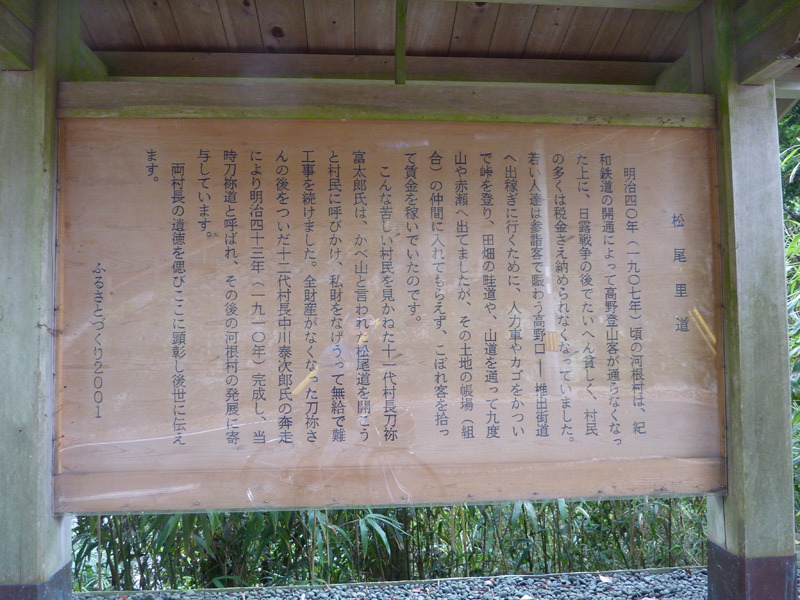 松尾里道
明治四〇年（一九〇七年）頃の河根村は、紀
和鉄道の開通によって高野登山客が通らなくなっ
た上に、日露戦争の後でたいへん貧しく、村民
の多くは税金さえ納められなくなっていました。
若い人達は参詣客で賑わう高野口――椎出街道
へ出稼ぎに行くために、人力車やカゴをかつい
で峠を登り、田畑の畦道や、山道を通って九度
山や赤瀬へ出てましたが、その土地の帳場（組
合）の仲間に入れてもらえず、こぼれ客を拾っ
て賃金を稼いでいたのです。
こんな苦しい村民を見かねた十一代村長刀祢
富太郎氏は、かべ山と言われた松尾道を開こう
と村民に呼びかけ、私財をなげうって無給で難
工事を続けました。全財産がなくなった刀祢さ
んの後をついだ十二代村長中川泰次郎氏の奔走
により明治四十三年（一九一〇年）完成し、当
時刀祢道と呼ばれ、その後の河根村の発展に寄
与しています。
両村長の遺徳を偲びここに顕彰し後世に伝え
ます。
ふるさとづくり２００１